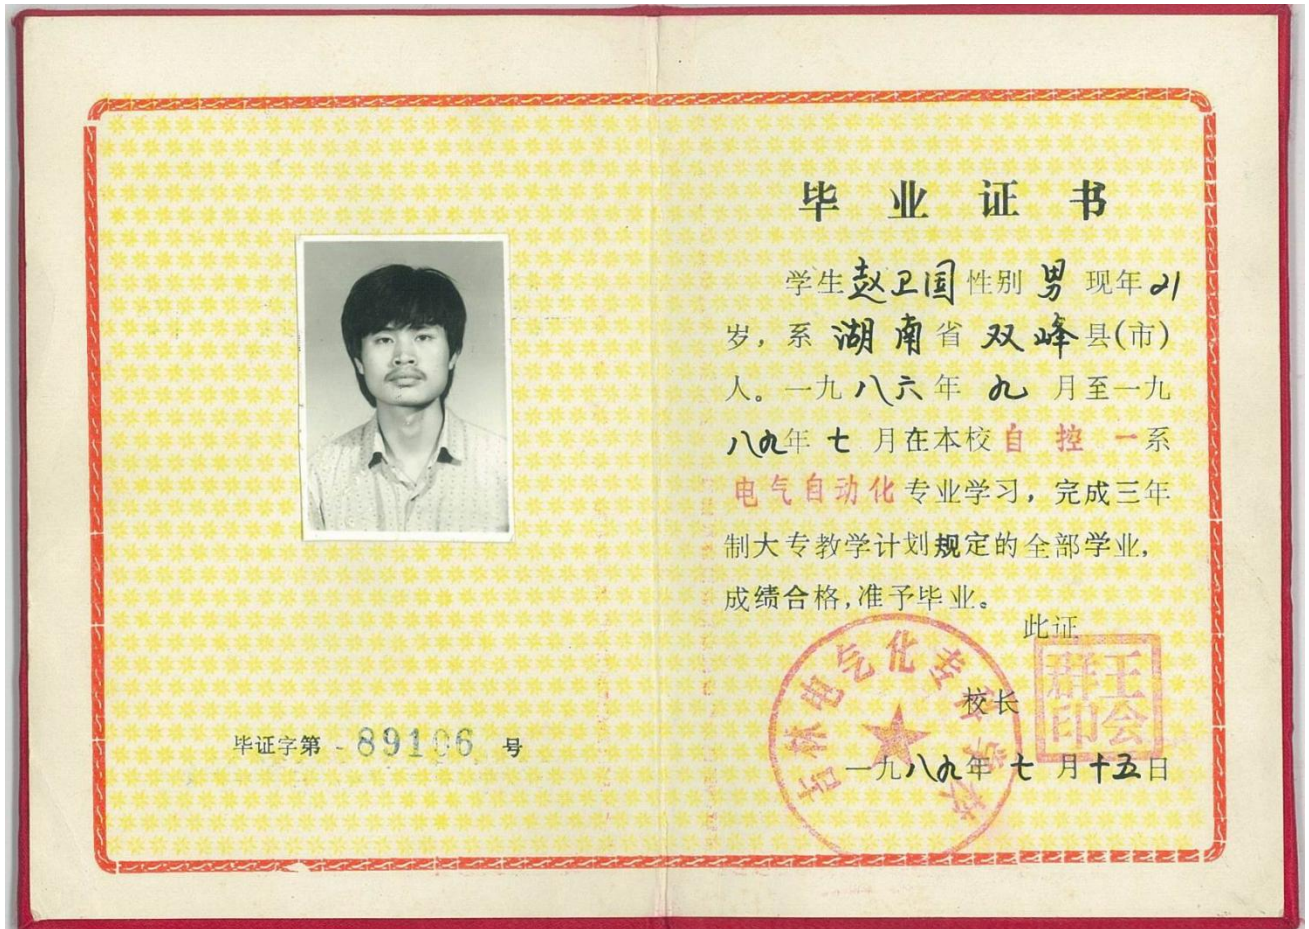 毕业证书
学生赵卫国性别男现年21
岁，系湖南省双峰县(市)
人。一九八六年九月至一九
八九年七月在本校自控一系
电气自动化专业学习，完成三年
制大专教学计划规定的全部学业，
成绩合格，准予毕业。
此证
吉林电气化专科学校
校长
王会群印
一九八九年七月十五日
毕证字第-89106号